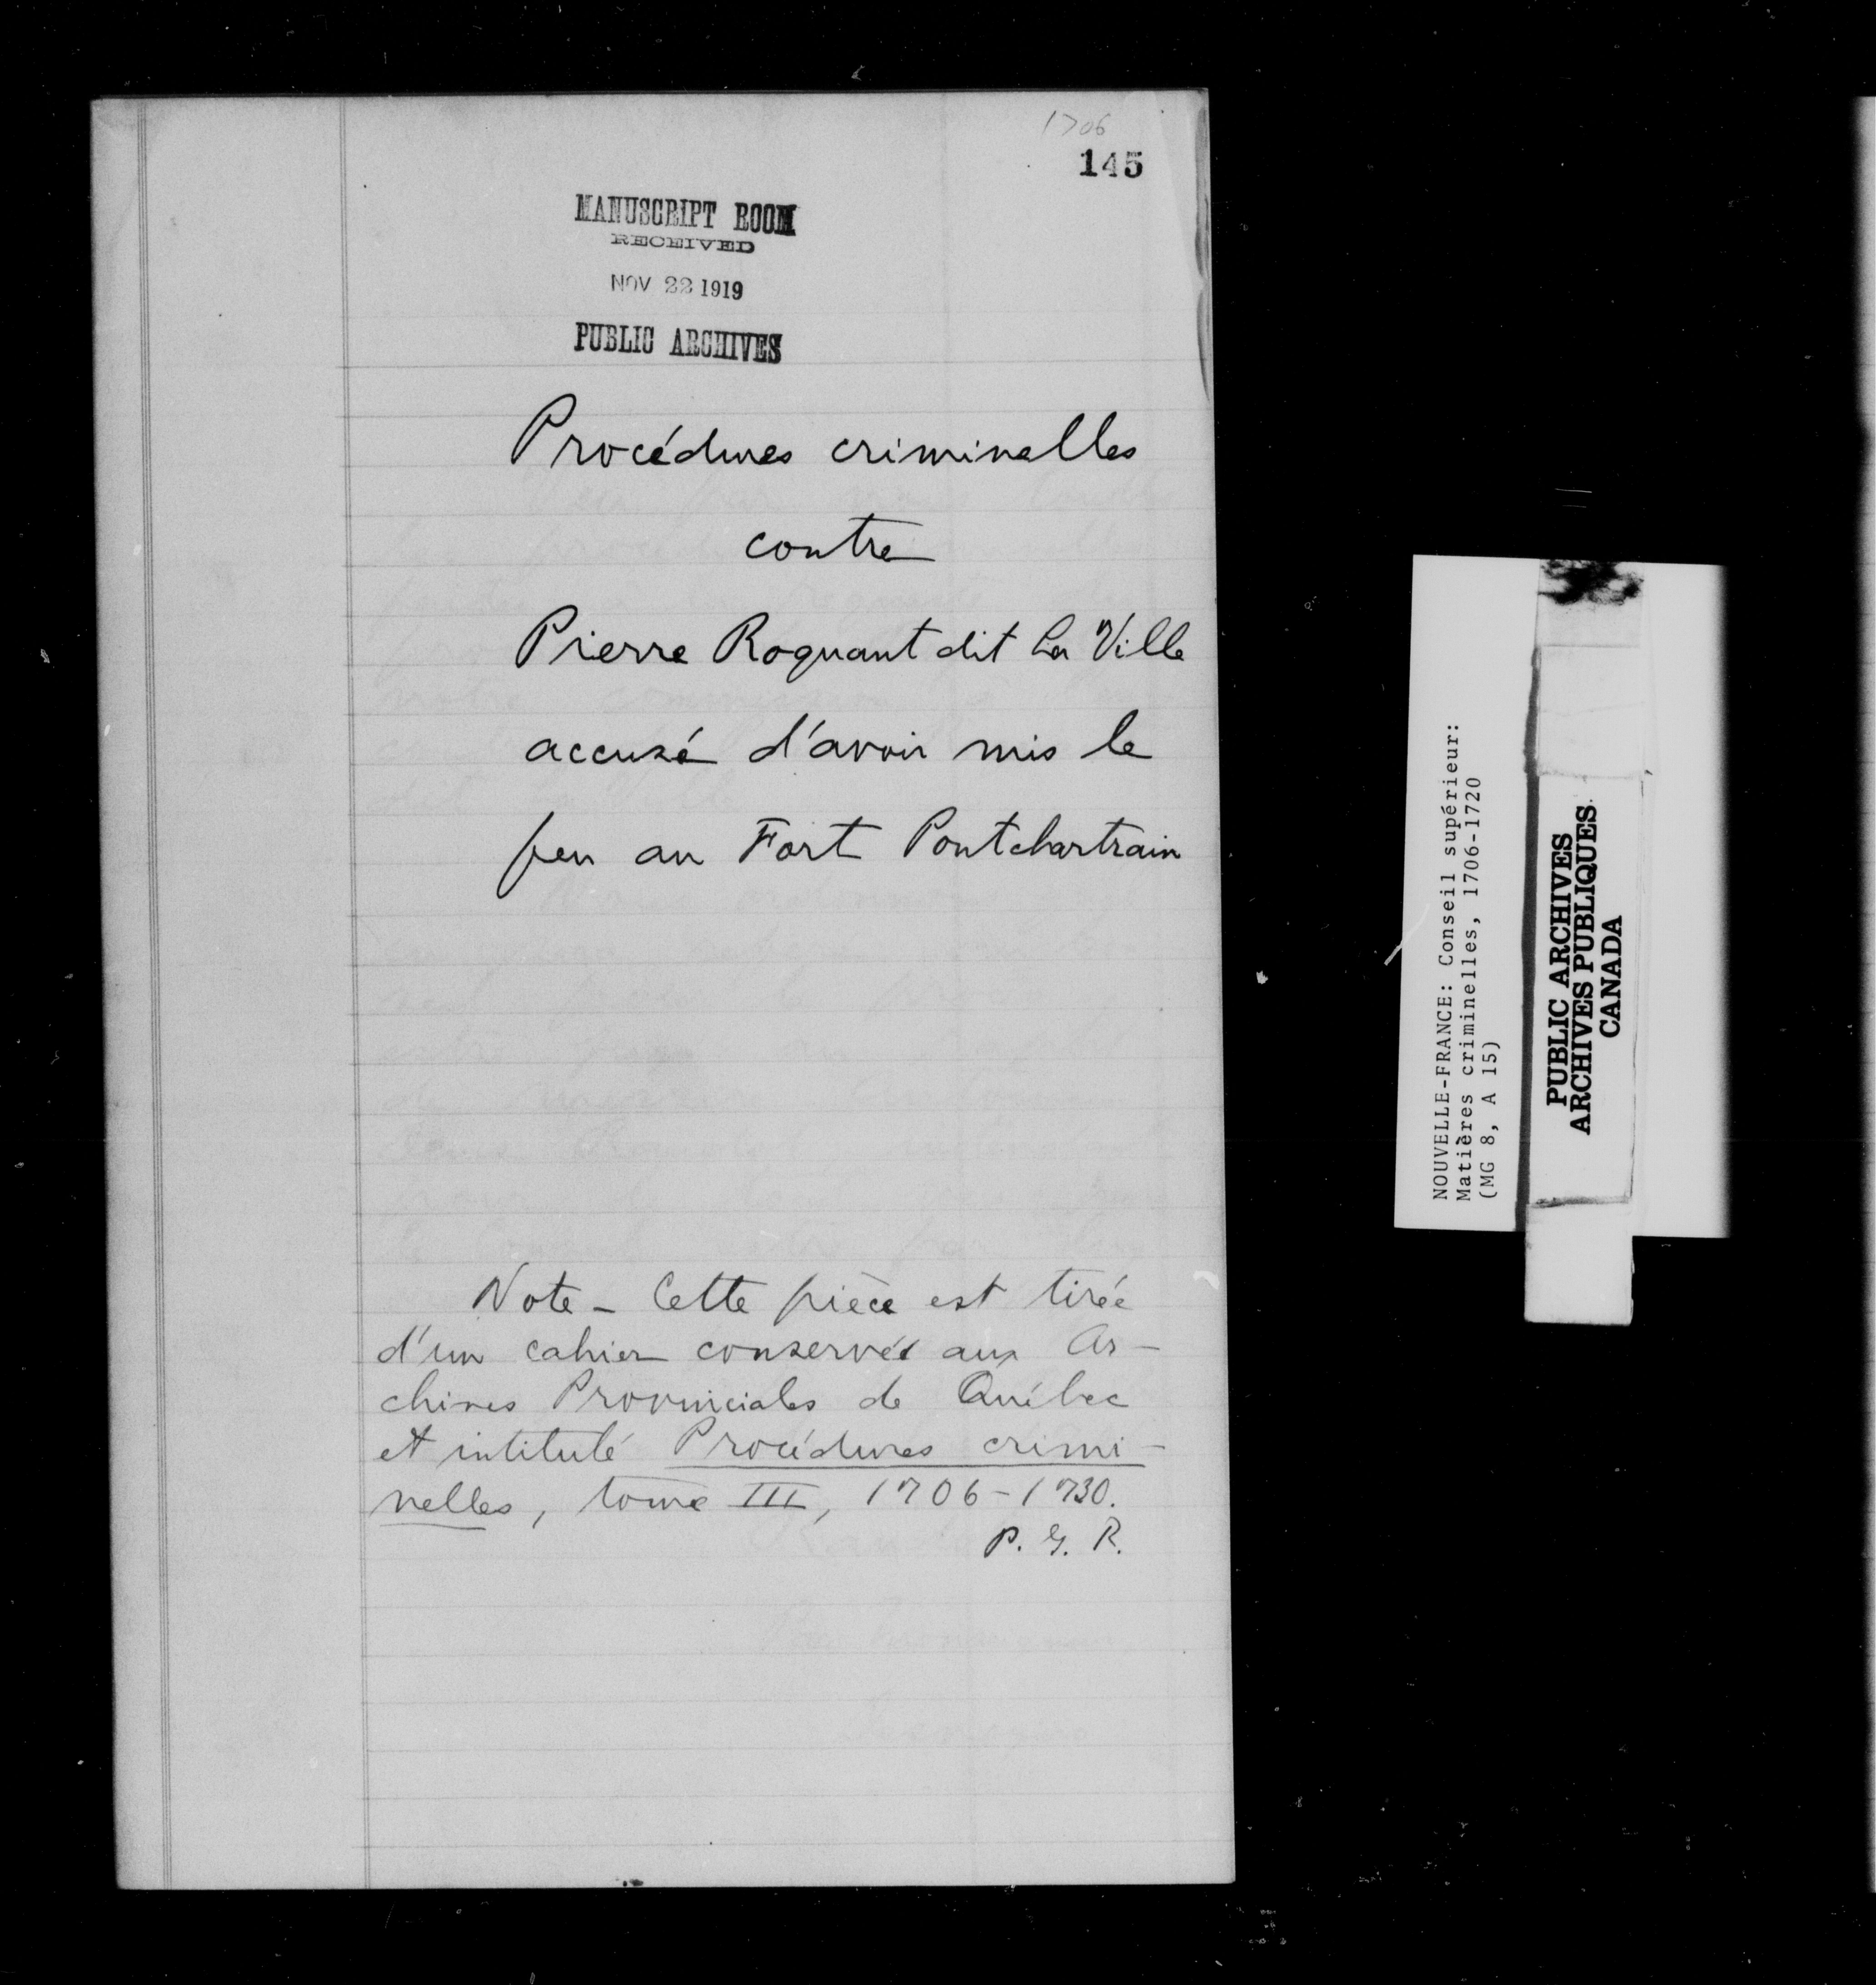 1706
145
MANUSCRIPT ROOM
RECEIVED
NOV 22 1919
PUBLIC ARCHIVES
Procédures criminelles
contre
Pierre Roquant dit La Ville
accusé d'avoir mis le
feu au Fort Pontchartrain
Note - Cette pièce est tirée
d'un cahier conservée aux Ar-
chives Provinciales de Québec
et intitulé Procédures crimi-
nelles, tome III, 1706-1730.
P. G. R.
NOUVELLE-FRANCE: Conseil supérieur:
Matières criminelles, 1706-1720
(MG 8, A 15)
PUBLIC ARCHIVES
ARCHIVES PUBLIQUES
CANADA